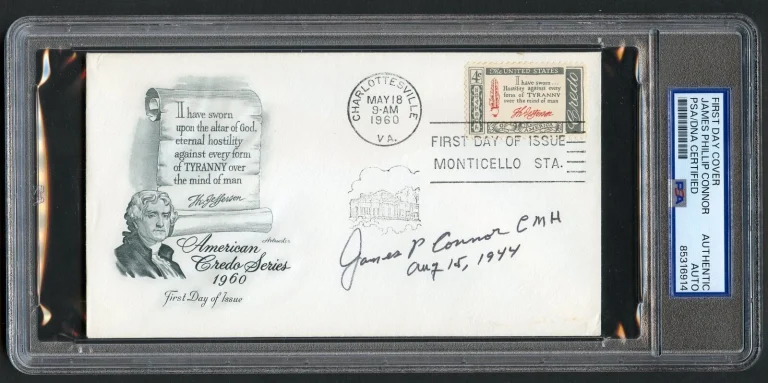 I have sworn
upon the altar of God,
eternal hostility
against every form
of TYRANNY over
the mind of man
Th. Jefferson
Artmaster
American
Credo Series
1960
First Day of Issue
CHARLOTTESVILLE
MAY 18
9-AM
1960
VA.
4¢ THE UNITED STATES
I have sworn...
Hostility against every
form of TYRANNY
over the mind of man
Th. Jefferson
Credo
FIRST DAY OF ISSUE
MONTICELLO STA.
James P Connor CMH
Aug 15, 1944
FIRST DAY COVER
JAMES PHILLIP CONNOR
PSA/DNA CERTIFIED
PSA
AUTHENTIC
AUTO
85316914